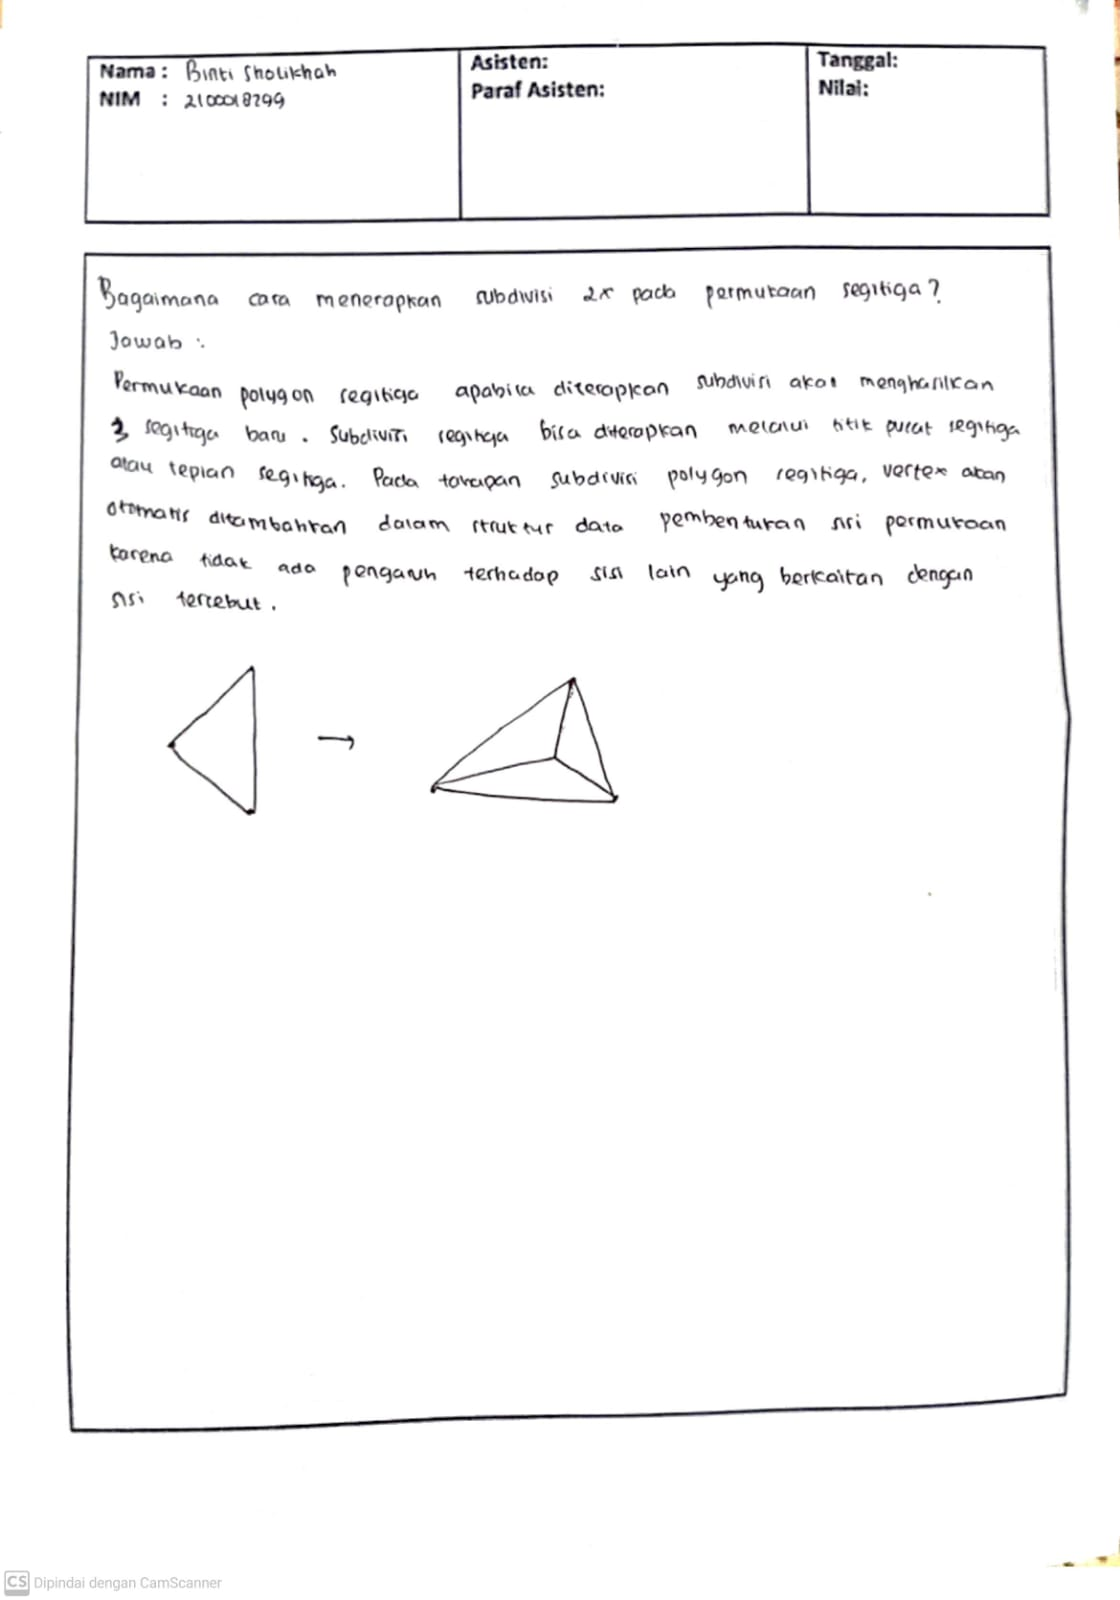 Nama : Binti Sholikhah
NIM : 2100018299
Asisten:
Paraf Asisten:
Tanggal:
Nilai:
Bagaimana cara menerapkan subdivisi 2x pada permukaan segitiga?
Jawab :
Permukaan polygon segitiga apabila diterapkan subdivisi akan menghasilkan
3 segitiga baru. Subdivisi segitiga bisa diterapkan melalui titik pusat segitiga
atau tepian segitiga. Pada tahapan subdivisi polygon segitiga, vertex akan
otomatis ditambahkan dalam struktur data pembentukan sisi permukaan
karena tidak ada pengaruh terhadap sisi lain yang berkaitan dengan
sisi tersebut.
CS Dipindai dengan CamScanner